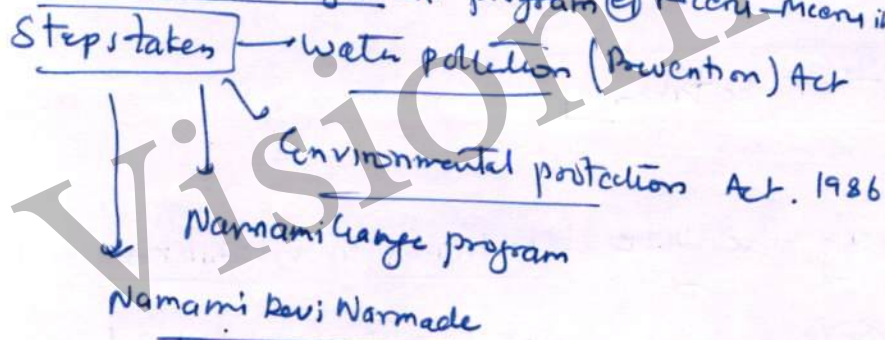 program eg
Steps taken → Water pollution (Prevention) Act
Environmental protection Act. 1986
Namami Gange program
Namami Devi Narmade
Vision